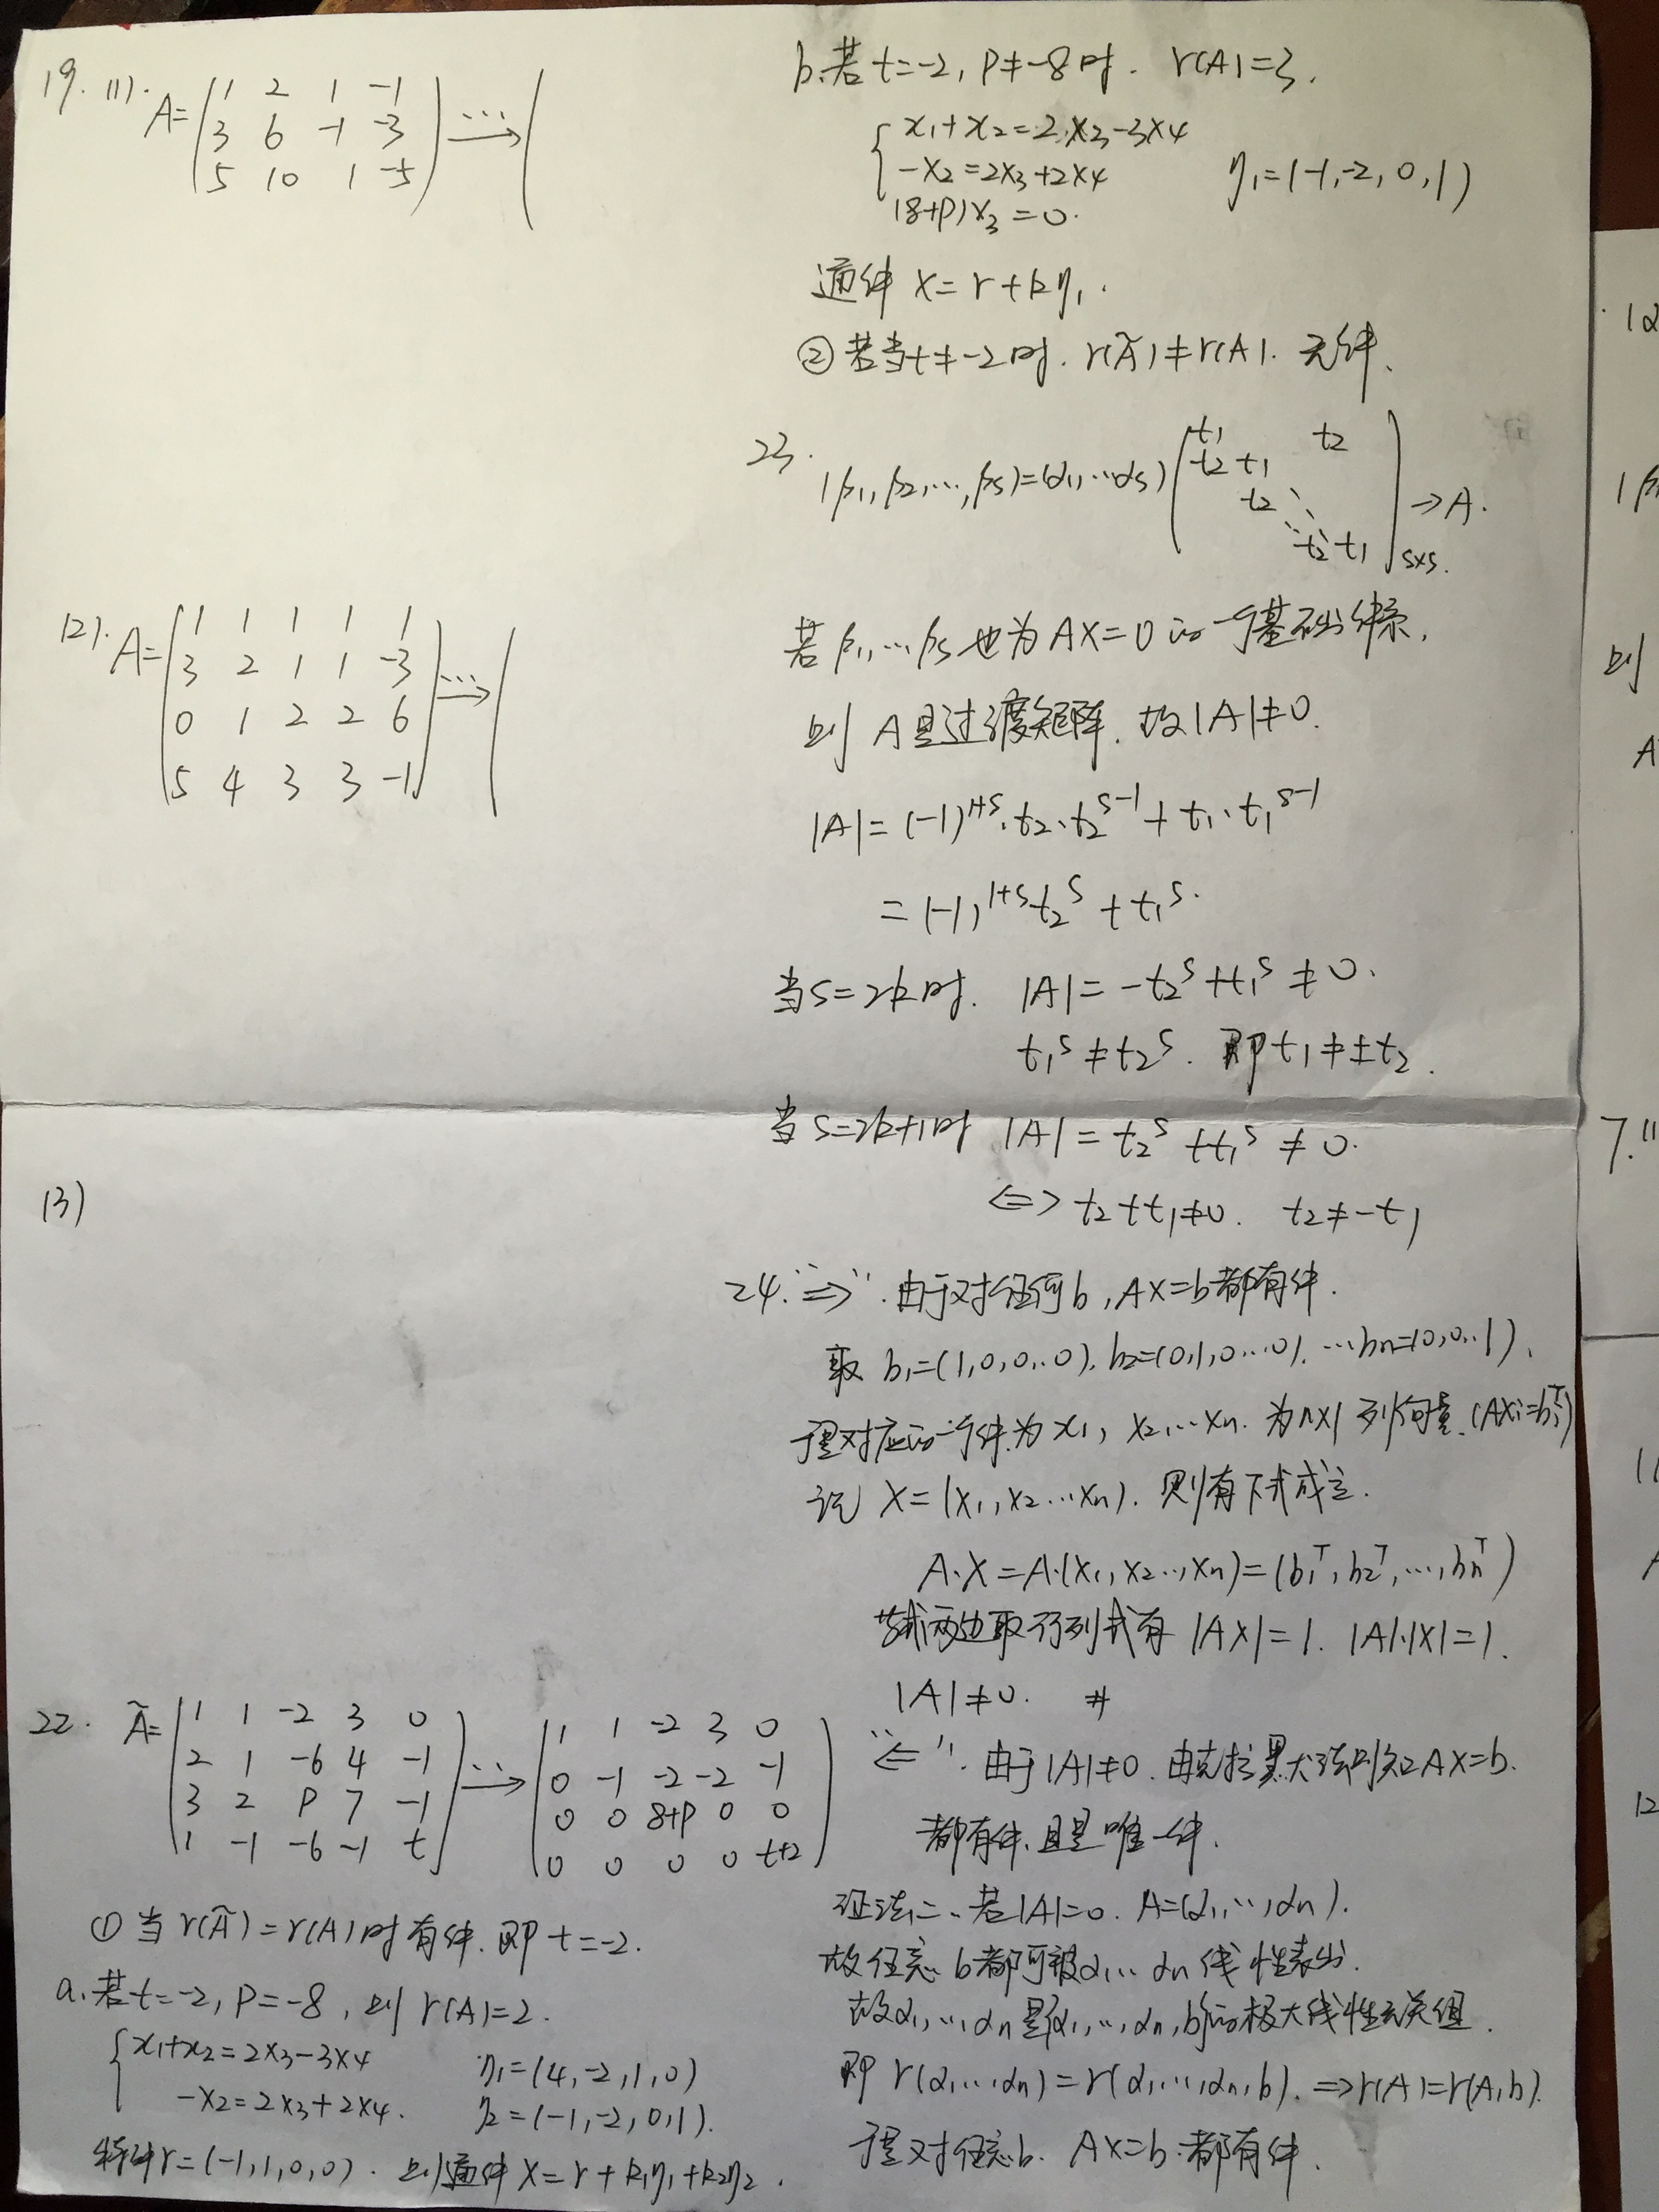 19. (1). A = ( 1 2 1 -1
3 6 -1 -3
5 10 1 -5 ) ⋯→ (
(2). A = ( 1 1 1 1 1
3 2 1 1 -3
0 1 2 2 6
5 4 3 3 -1 ) ⋯→ (
(3)
22. Ã = ( 1 1 -2 3 0
2 1 -6 4 -1
3 2 P 7 -1
1 -1 -6 -1 t ) ⋯→ ( 1 1 -2 3 0
0 -1 -2 -2 -1
0 0 8+P 0 0
0 0 0 0 t+2 )
① 当 r(Ã) = r(A) 时有解. 即 t=-2.
a. 若 t=-2, P=-8, 则 r(A)=2.
{ x₁+x₂=2x₃-3x₄ η₁=(4,-2,1,0)
-x₂=2x₃+2x₄. η₂=(-1,-2,0,1).
特解 r=(-1,1,0,0). 则通解 X=r+k₁η₁+k₂η₂.
b. 若 t=-2, P≠-8时. r(A)=3.
{ x₁+x₂=2x₃-3x₄
-x₂=2x₃+2x₄ η₁=(-1,-2,0,1)
(8+P)x₃=0.
通解 X=r+kη₁.
② 若当 t≠-2时. r(Ã)≠r(A). 无解.
23. (β₁,β₂,⋯,βs)=(α₁,⋯αs) ( t₁ t₂
t₂ t₁
t₂ ⋱
⋱ t₂ t₁ )s×s. → A.
若 β₁,⋯βs 也为 AX=0 的一个基础解系,
则 A 是过渡矩阵. 故 |A|≠0.
|A|=(-1)^{1+s}·t₂·t₂^{s-1}+t₁·t₁^{s-1}
=(-1)^{1+s}t₂^s+t₁^s.
当 s=2k时. |A|=-t₂^s+t₁^s≠0.
t₁^s≠t₂^s. 即 t₁≠±t₂.
当 s=2k+1时 |A|=t₂^s+t₁^s≠0.
⇔ t₂+t₁≠0. t₂≠-t₁
24. "⇒". 由于对任何b, AX=b都有解.
取 b₁=(1,0,0,..0), b₂=(0,1,0⋯0). ⋯bn=(0,0..1).
于是对应的一个解为 x₁, x₂⋯xn. 为n×1列向量. (Axi=bi^T)
记 X=(x₁,x₂⋯xn). 则有下式成立.
A·X=A·(x₁,x₂..,xn)=(b₁^T,b₂^T,⋯,bn^T)
等式两边取行列式有 |AX|=1. |A|·|X|=1.
|A|≠0. #
"⇐". 由于|A|≠0. 由克拉默大法则知AX=b.
都有解.且是唯一解.
证法二、若|A|=0. A=(α₁,⋯,αn).
故任意b都可被α₁⋯αn线性表出.
故α₁,⋯,αn是α₁,⋯,αn,b的极大线性无关组.
即 r(α₁,⋯,αn)=r(α₁,⋯,αn,b). ⇒r(A)=r(A,b).
于是对任意b. AX=b.都有解.
则
A
7.
12